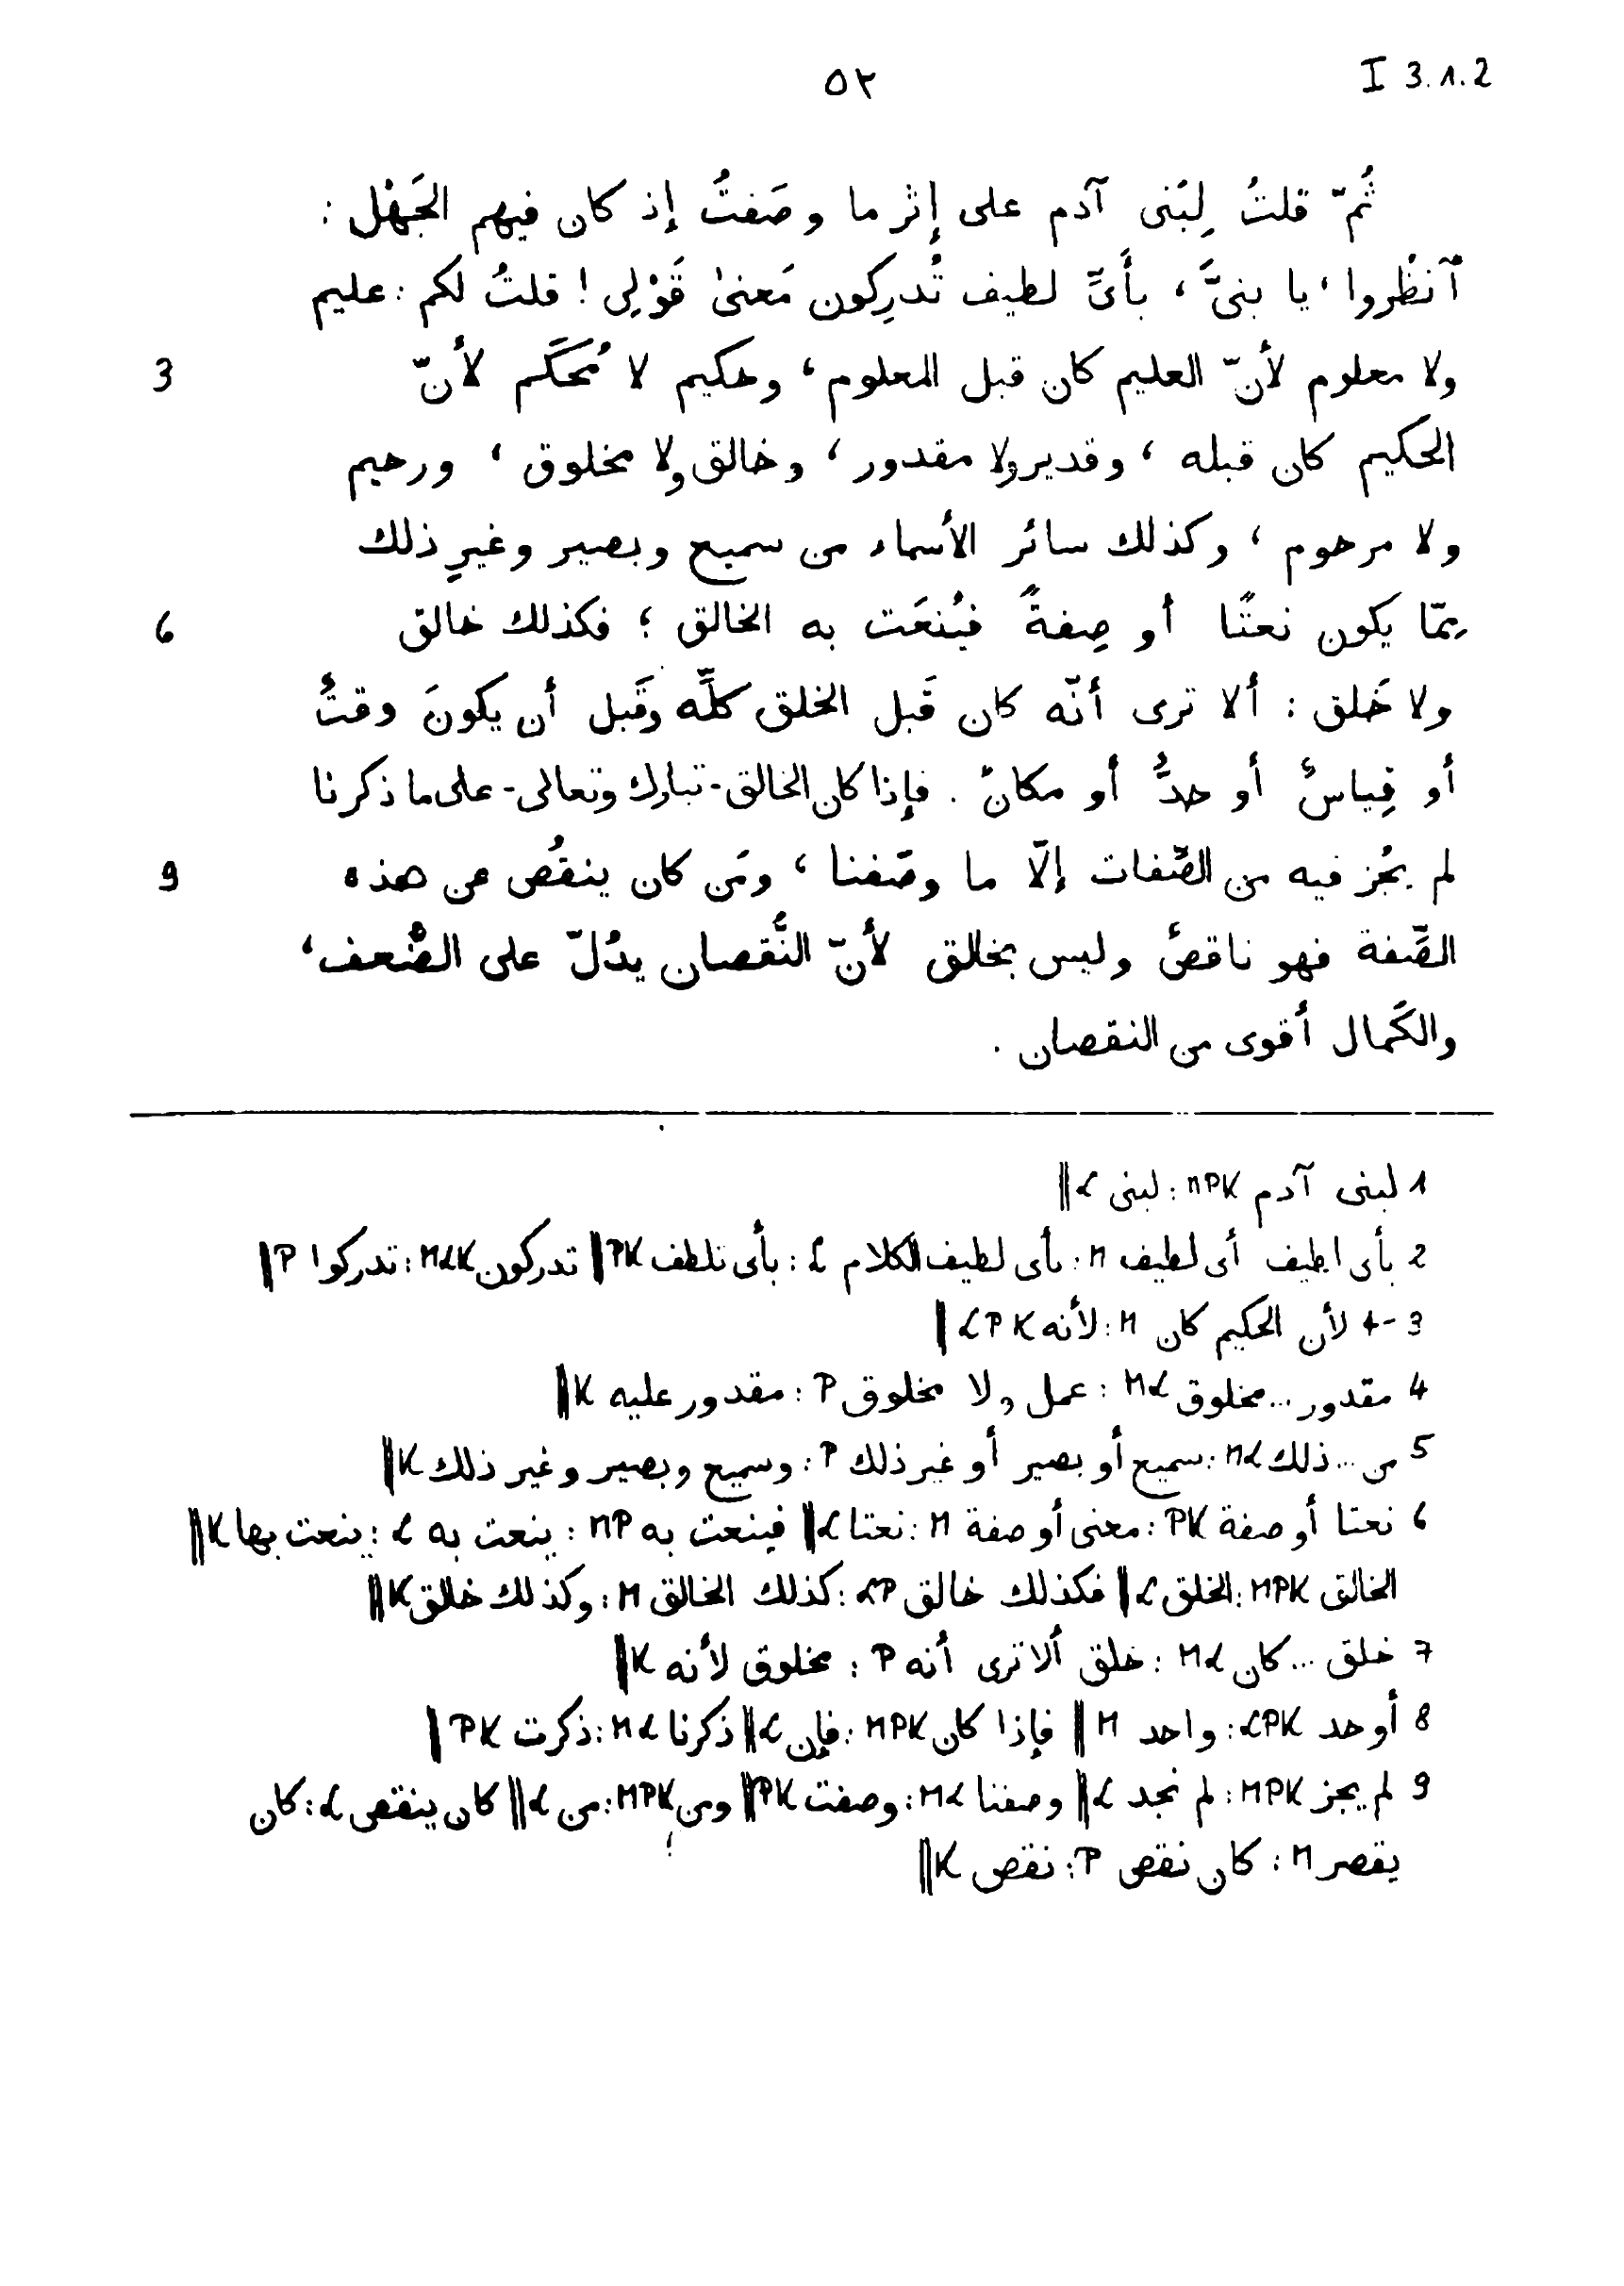 I 3.1.2
٥٢
ثُمّ قلتُ لِبَنى آدم على إثر ما وصَفتُ إذ كان فيهم الجَهْل :
ٱنظُروا ، يا بنىَّ ، بأىِّ لطيف تُدرِكون مَعنىٰ قَوْلِى ! قلتُ لكم : عليم
3 ولا معلوم لأنّ العليم كان قبل المعلوم ، وحكيم لا مُحكَم لأنّ
الحكيم كان قبله ، وقدير ولا مقدور ، وخالق ولا مخلوق ، ورحيم
ولا مرحوم ، وكذلك سائر الأسماء من سميع وبصير وغيرِ ذلك
6 مِمّا يكون نعتًا أو صِفةً فيُنعَت به الخالق ؛ فكذلك خالق
ولا خَلق : ألا ترى أنّه كان قَبل الخلق كلِّه وقَبل أن يكونَ وقتٌ
أو قِياسٌ أو حدٌّ أو مكانٌ . فإذا كان الخالق - تبارك وتعالى - على ما ذكرنا
9 لم يجُز فيه من الصِّفات إلّا ما وصَفنا ، ومَن كان ينقُص عن هذه
الصِّفة فهو ناقصٌ وليس بخالق لأنّ النُّقصان يدُلّ على الضُّعف ،
والكَمال أقوى من النقصان .
1 لبنى آدم MPK : لبنى L ||
2 بأى لطيف أى لطيف M : بأى لطيف الكلام L : بأى تلطف PK || تدركون MLK : تدركوا P ||
3-4 لأن الحكيم كان M : لأنه LPK ||
4 مقدور ... مخلوق ML : عمل ولا مخلوق P : مقدور عليه K ||
5 من ... ذلك ML : سميع أو بصير أو غير ذلك P : وسميع وبصير وغير ذلك K ||
6 نعتا أو صفة PK : معنى أو صفة M : نعتا L || فينعت به MP : ينعت به L : ينعت بها K ||
الخالق MPK : الخلق L || فكذلك خالق LP : كذلك الخالق M : وكذلك خالق K ||
7 خلق ... كان ML : خلق ألا ترى أنه P : مخلوق لأنه K ||
8 أو حد LPK : واحد M || فإذا كان MPK : فإن L || ذكرنا ML : ذكرت PK ||
9 لم يجز MPK : لم نجد L || وصفنا ML : وصفت PK || ومن MPK : من L || كان ينقص L : كان
يقصر M : كان نقص P : نقص K ||